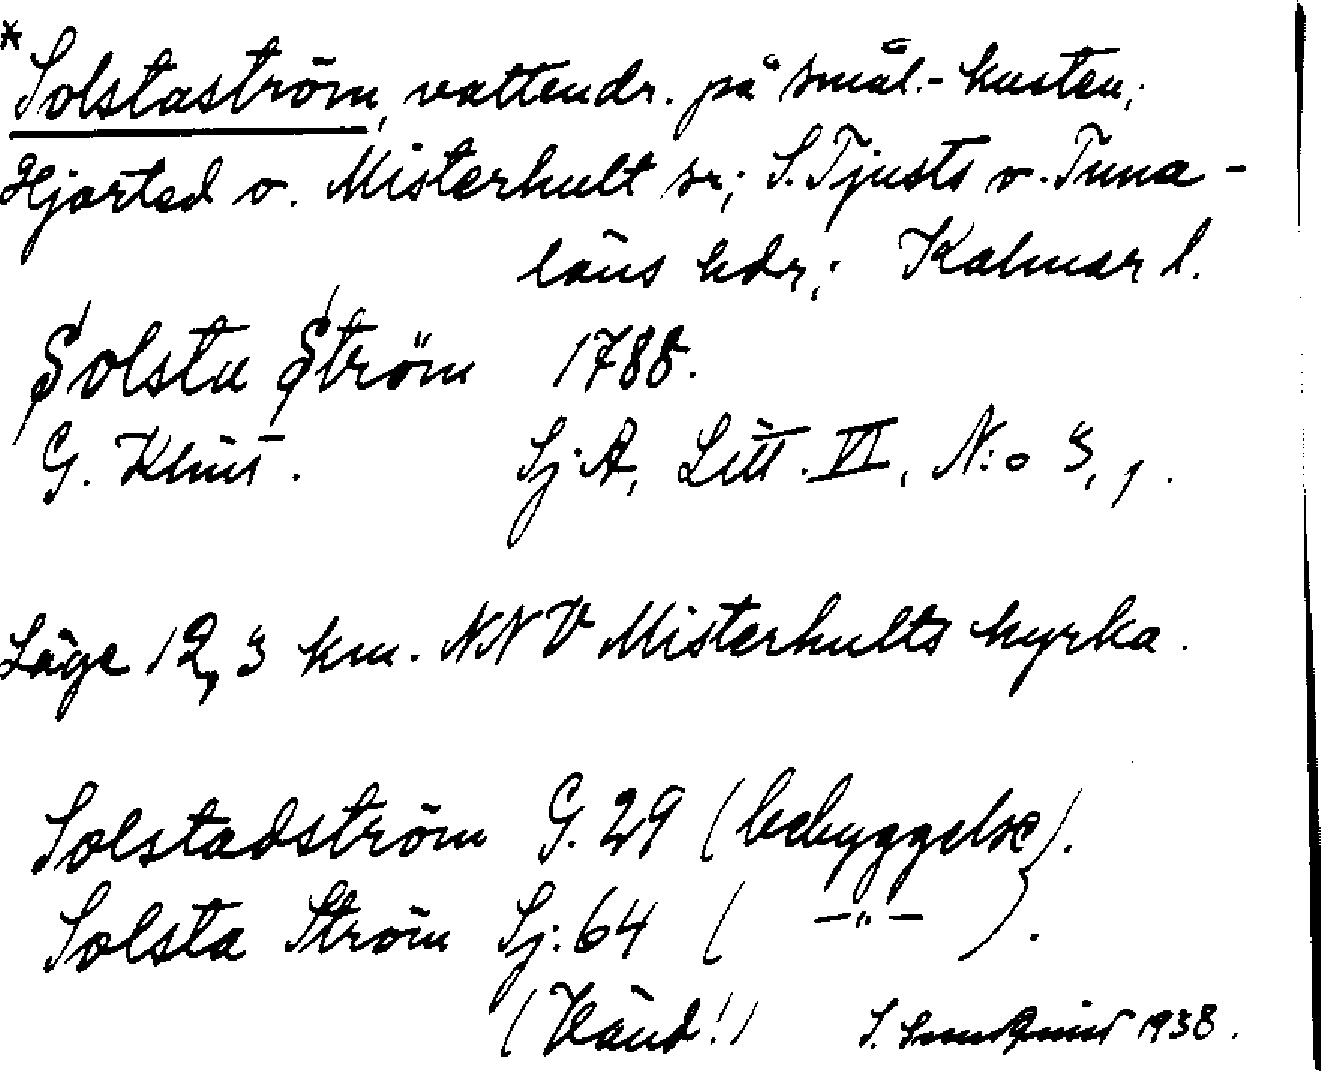 *
Solstaström, vattendr. på Smål.-kusten;
Hjorted o. Misterhult sr; S. Tjusts o. Tuna-
läns hdr; Kalmar l.
Solsta Ström 1788.
G. Klint. Sj:A, Litt. VI, N:o 3, 1.
Läge 12,3 km. NNV Misterhults kyrka.
Solstadström G. 29 (bebyggelse).
Solsta Ström Sj: 64 ( —"— ).
(Vänd!) S. 1938.